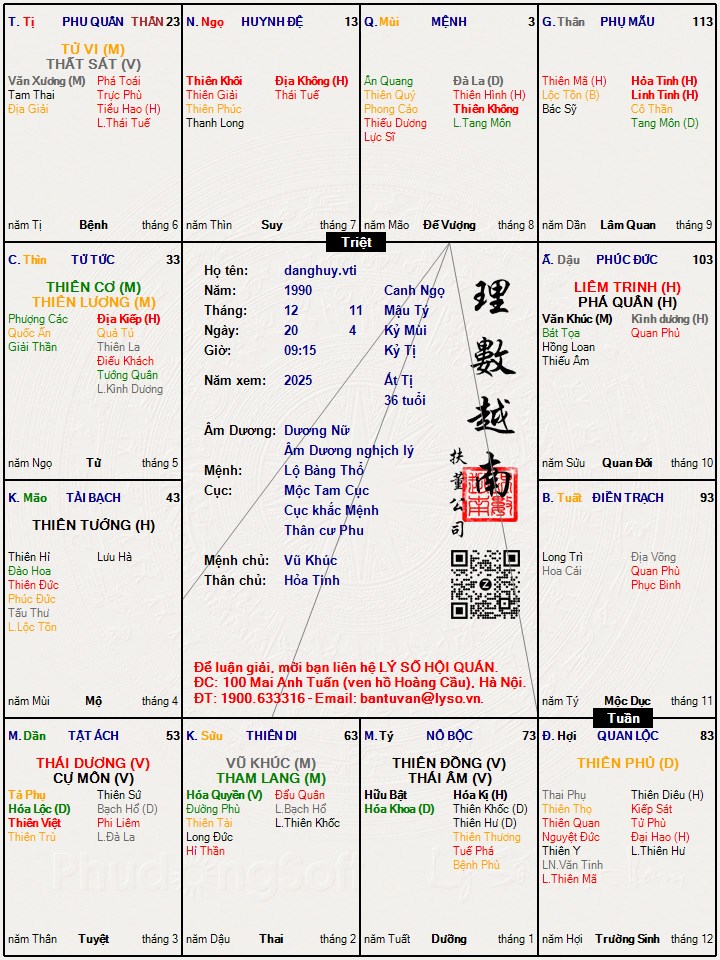 T. Tị PHU QUÂN THÂN 23
TỬ VI (M)
THẤT SÁT (V)
Văn Xương (M) Phá Toái
Tam Thai Trực Phù
Địa Giải Tiểu Hao (H)
L.Thái Tuế
năm Tị Bệnh tháng 6
N. Ngọ HUYNH ĐỆ 13
Thiên Khôi Địa Không (H)
Thiên Giải Thái Tuế
Thiên Phúc
Thanh Long
năm Thìn Suy tháng 7
Q. Mùi MỆNH 3
Ân Quang Đà La (D)
Thiên Quý Thiên Hình (H)
Phong Cáo Thiên Không
Thiếu Dương L.Tang Môn
Lực Sĩ
năm Mão Đế Vượng tháng 8
G. Thân PHỤ MẪU 113
Thiên Mã (H) Hỏa Tinh (H)
Lộc Tồn (B) Linh Tinh (H)
Bác Sỹ Cô Thần
Tang Môn (D)
năm Dần Lâm Quan tháng 9
Triệt
C. Thìn TỬ TỨC 33
THIÊN CƠ (M)
THIÊN LƯƠNG (M)
Phượng Các Địa Kiếp (H)
Quốc Ấn Quả Tú
Giải Thần Thiên La
Điếu Khách
Tướng Quân
L.Kình Dương
năm Ngọ Tử tháng 5
Họ tên: danghuy.vti
Năm: 1990 Canh Ngọ
Tháng: 12 11 Mậu Tý
Ngày: 20 4 Kỷ Mùi
Giờ: 09:15 Kỷ Tị
Năm xem: 2025 Ất Tị
36 tuổi
Âm Dương: Dương Nữ
Âm Dương nghịch lý
Mệnh: Lộ Bàng Thổ
Cục: Mộc Tam Cục
Cục khắc Mệnh
Thân cư Phu
Mệnh chủ: Vũ Khúc
Thân chủ: Hỏa Tinh
理數越南
扶董公司
Để luận giải, mời bạn liên hệ LÝ SỐ HỘI QUÁN.
ĐC: 100 Mai Anh Tuấn (ven hồ Hoàng Cầu), Hà Nội.
ĐT: 1900.633316 - Email: bantuvan@lyso.vn.
Ấ. Dậu PHÚC ĐỨC 103
LIÊM TRINH (H)
PHÁ QUÂN (H)
Văn Khúc (M) Kình dương (H)
Bát Tọa Quan Phủ
Hồng Loan
Thiếu Âm
năm Sửu Quan Đới tháng 10
K. Mão TÀI BẠCH 43
THIÊN TƯỚNG (H)
Thiên Hỉ Lưu Hà
Đào Hoa
Thiên Đức
Phúc Đức
Tấu Thư
L.Lộc Tồn
năm Mùi Mộ tháng 4
B. Tuất ĐIỀN TRẠCH 93
Long Trì Địa Võng
Hoa Cái Quan Phù
Phục Binh
năm Tý Mộc Dục tháng 11
Tuần
M. Dần TẬT ÁCH 53
THÁI DƯƠNG (V)
CỰ MÔN (V)
Tả Phụ Thiên Sứ
Hóa Lộc (D) Bạch Hổ (D)
Thiên Việt Phi Liêm
Thiên Trù L.Đà La
năm Thân Tuyệt tháng 3
K. Sửu THIÊN DI 63
VŨ KHÚC (M)
THAM LANG (M)
Hóa Quyền (V) Đẩu Quân
Đường Phù L.Bạch Hổ
Thiên Tài L.Thiên Khốc
Long Đức
Hỉ Thần
năm Dậu Thai tháng 2
M. Tý NÔ BỘC 73
THIÊN ĐỒNG (V)
THÁI ÂM (V)
Hữu Bật Hóa Kị (H)
Hóa Khoa (D) Thiên Khốc (D)
Thiên Hư (D)
Thiên Thương
Tuế Phá
Bệnh Phù
năm Tuất Dưỡng tháng 1
Đ. Hợi QUAN LỘC 83
THIÊN PHỦ (D)
Thai Phụ Thiên Diêu (H)
Thiên Thọ Kiếp Sát
Thiên Quan Tử Phù
Nguyệt Đức Đại Hao (H)
Thiên Y L.Thiên Hư
LN.Văn Tinh
L.Thiên Mã
năm Hợi Trường Sinh tháng 12